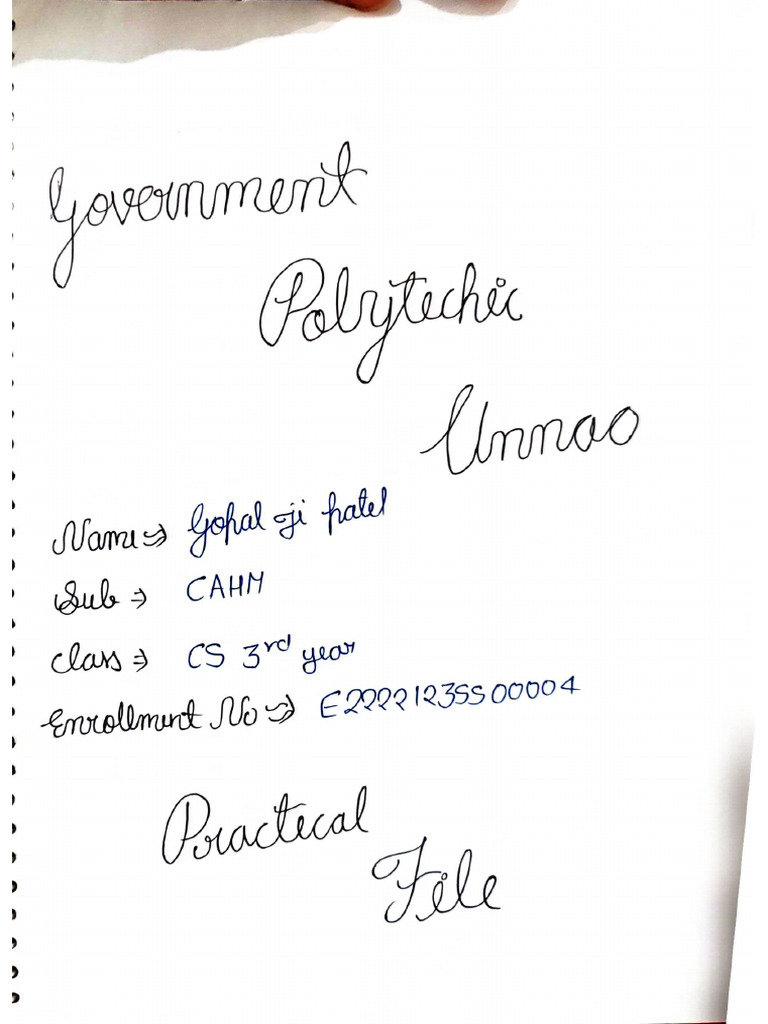 Government
Polytechic
Unnao
Name => Gopal Ji patel
Sub => CAHM
Class => CS 3rd year
Enrollment No => E22221235500004
Practical
File